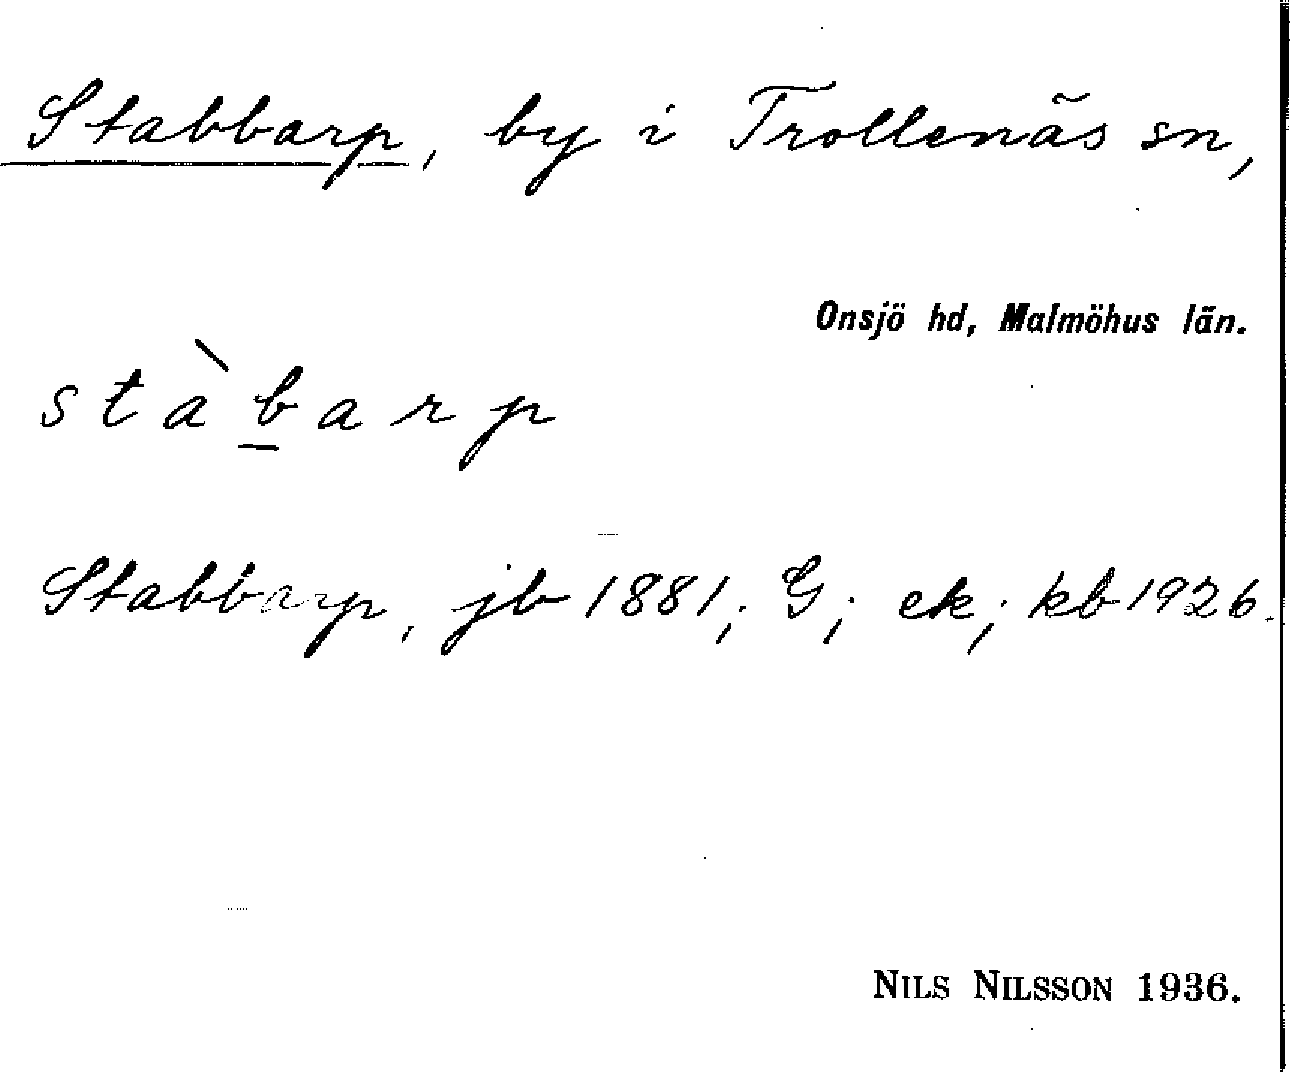 Stabbarp, by i Trollenäs sn,
Onsjö hd, Malmöhus län.
stàb̲arp
Stabbarp, jb 1881; G; ek; kb 1926.
NILS NILSSON 1936.